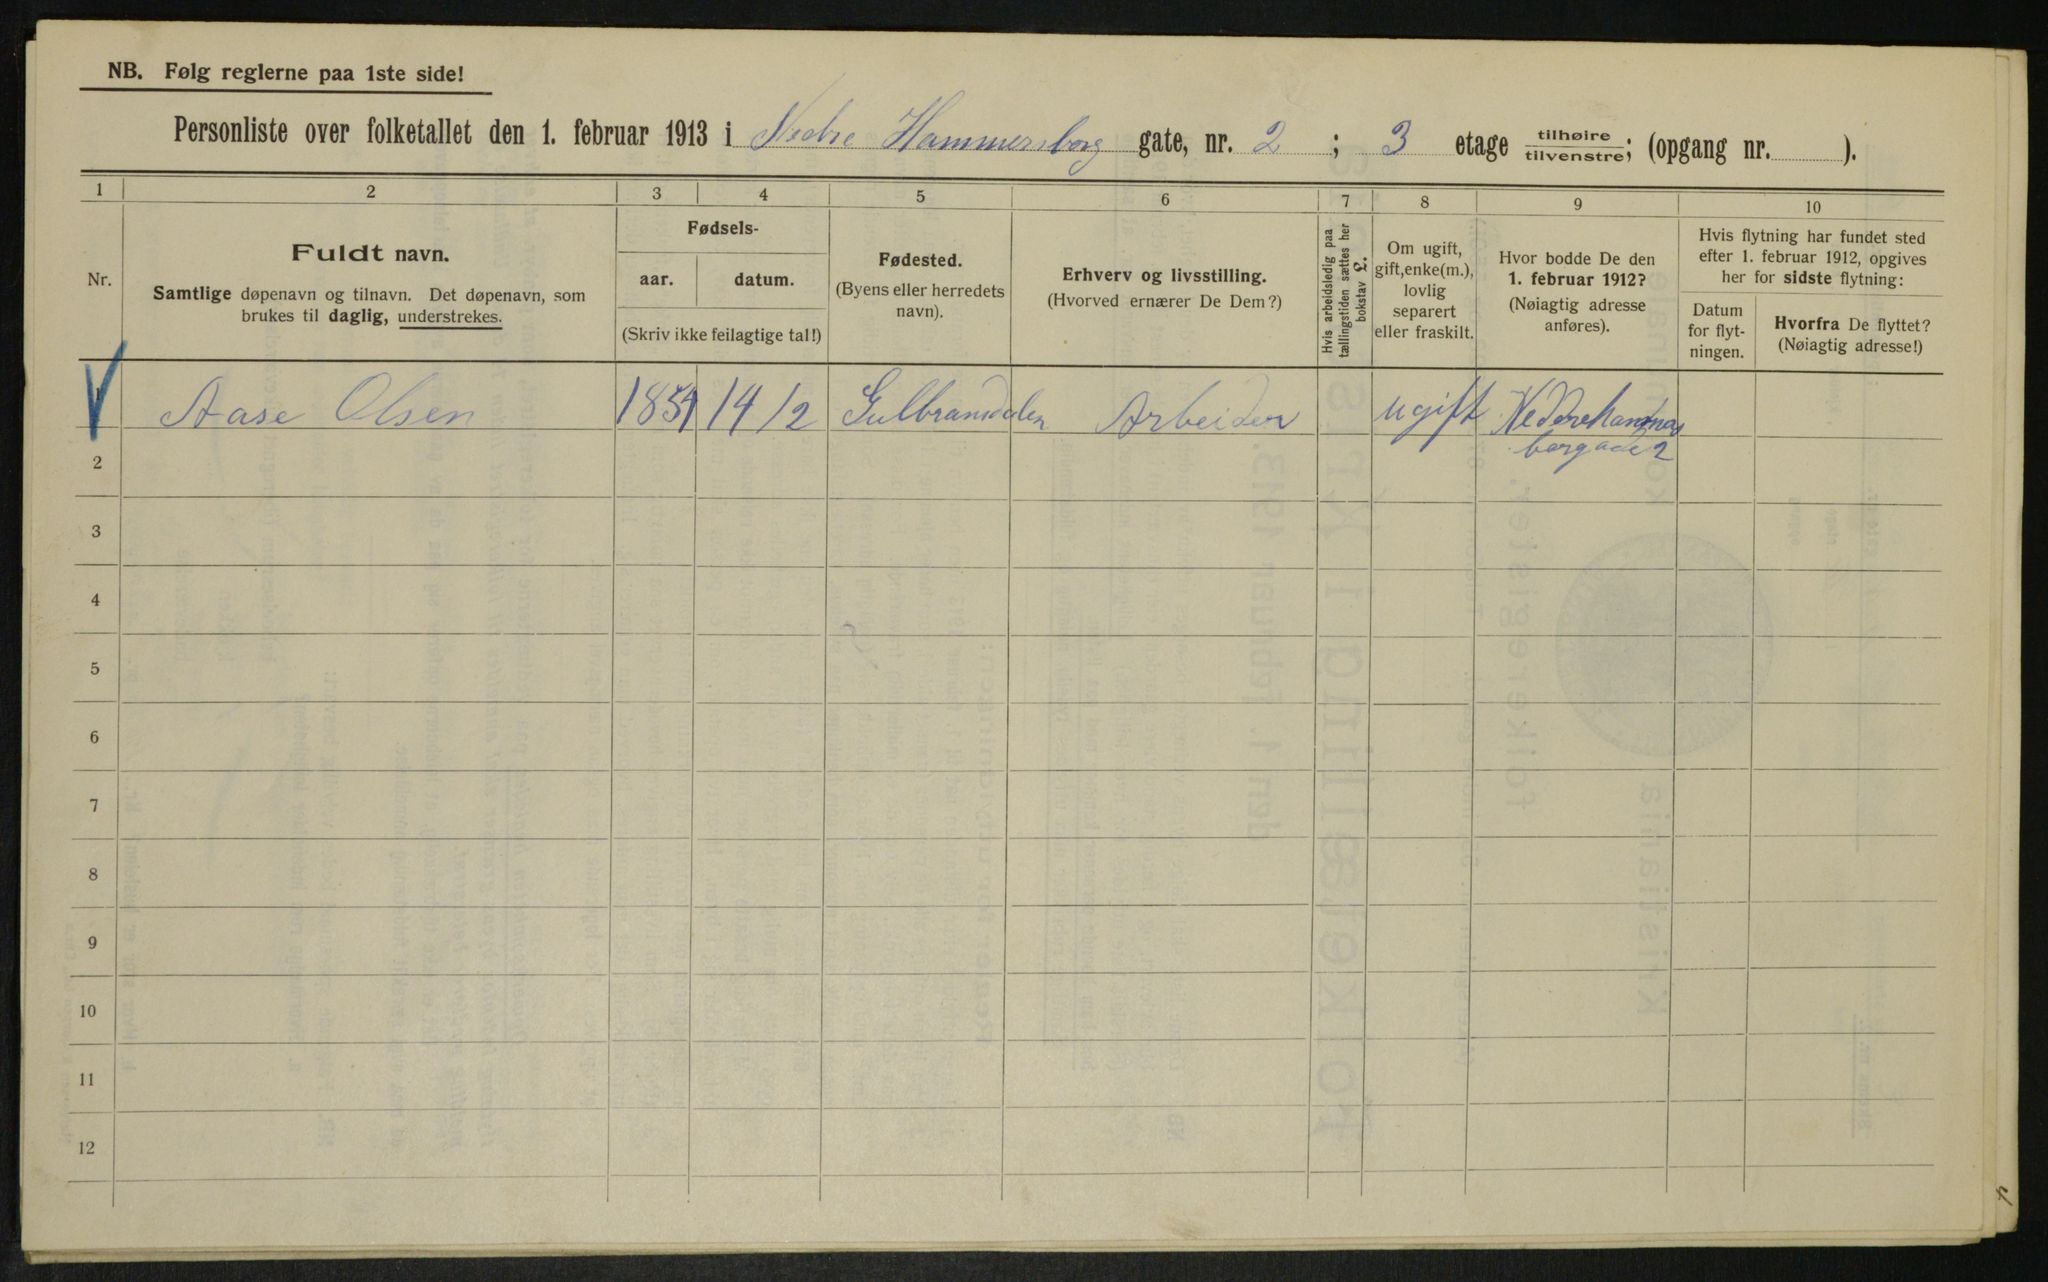 NB. Følg reglerne paa 1ste side!
Personliste over folketallet den 1. februar 1913 i Nedre Hammersborg gate, nr. 2 ; 3 etage tilhøire/tilvenstre; (opgang nr. ).
1 2 3 4 5 6 7 8 9 10
Nr.
Fuldt navn.
Samtlige døpenavn og tilnavn. Det døpenavn, som
brukes til daglig, understrekes.
Fødsels-
aar. datum.
(Skriv ikke feilagtige tal!)
Fødested.
(Byens eller herredets
navn).
Erhverv og livsstilling.
(Hvorved ernærer De Dem?)
Hvis arbeidsledig paa
tællingstiden sættes her
bokstav L.
Om ugift,
gift, enke(m.),
lovlig
separert
eller fraskilt.
Hvor bodde De den
1. februar 1912?
(Nøiagtig adresse
anføres).
Hvis flytning har fundet sted
efter 1. februar 1912, opgives
her for sidste flytning:
Datum
for flyt-
ningen.
Hvorfra De flyttet?
(Nøiagtig adresse!)
1 Aase Olsen 14/2 Gulbransdalen Arbeider ugift
2
3
4
5
6
7
8
9
10
11
12